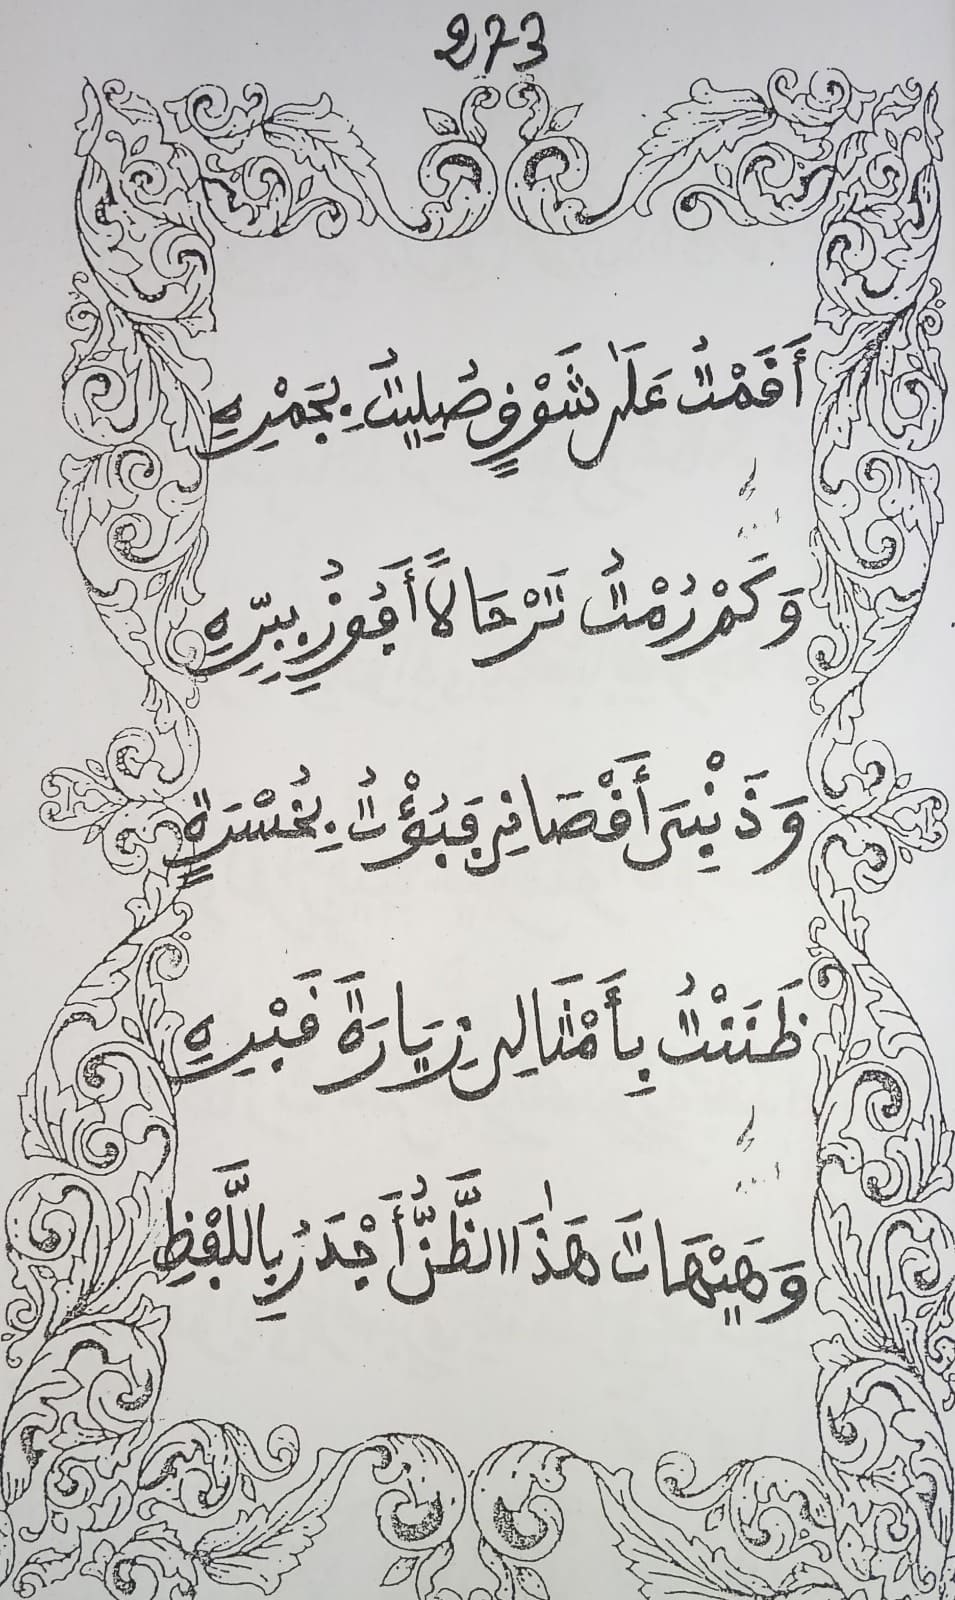 273
أَقَمْتُ عَلَىٰ شَوْقٍ صُلِيتُ بِجَمْرِهِ
وَكَمْ رُمْتُ تَرْحَالاً أَفُوزُ بِبِرِّهِ
وَذَنْبِيَ أَقْصَانِي فَبُؤْتُ بِخُسْرَةٍ
ظَنَنْتُ بِأَمْثَالِي زِيَارَةَ قَبْرِهِ
وَهَيْهَاتَ هَٰذَا الظَّنُّ أَجْدَرُ بِاللَّفْظِ